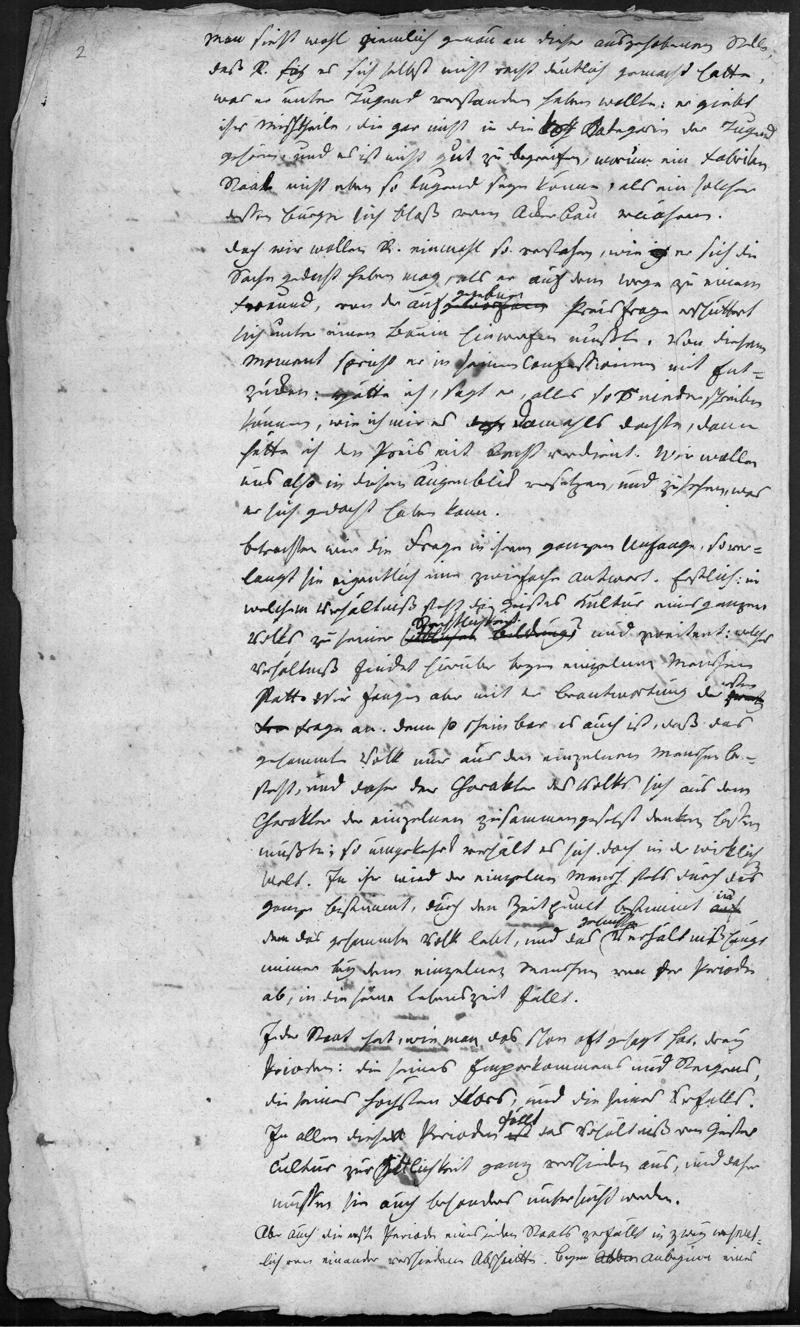 2
man sieht wohl ziemlich genau an dieser ausgehobenen Stelle,
daß R. es sich selbst nicht recht deutlich gemacht hatte,
was er unter Tugend verstanden haben wollte: er giebt
ihr, die gar nicht in die Kategorie der Tugend
gehören, und es ist nicht gut zu begreifen, warum ein
Staat nicht eben so Tugend haben könne, als ein solcher
dessen Bürger sich bloß vom Ackerbau ernähren.
Doch wir wollen R. einmahl so verstehen, wie er sich die
Sache gedacht haben mag, als er auf dem Wege zu einem
Freund, von der aufgegebenen Preisfrage erschüttert
sich unter einen Baum hinwerfen mußte. Von diesem
Moment spricht er in seinen Confessionen mit Ent-
zücken: hätte ich, sagt er, alles so niederschreiben
können, wie ich mir es damahls dachte, dann
hätte ich den Preis mit Recht verdient. Wir wollen
uns also in diesen Augenblick versetzen, und zusehen, was
er sich gedacht haben kann.
Betrachten wir die Frage in ihrem ganzen Umfange, so ver-
langt sie eigentlich eine zwiefache Antwort. Erstlich: in
welchem Verhältniß steht die Geistes Kultur eines ganzen
Volks zu seiner Sittlichkeit und zweitens: welches
Verhältniß findet hierüber beym einzelnen Menschen
statt. Wir fangen aber mit der Beantwortung der ersten
Frage an. denn so scheinbar es auch ist, daß das
gesammte Volk nur aus den einzelnen Menschen be-
steht, und daher der Charakter des Volks sich aus dem
Charakter der einzelnen zusammengesetzt denken lassen
müßte; so umgekehrt verhält es sich doch in der wirklichen
Welt. In ihr wird der einzelne Mensch stets durch das
ganze bestimmt, durch den Zeitpunkt bestimmt in
dem das gesammte Volk lebt, und das Verhältniß hängt
immer bey dem einzelnen Menschen von der Periode
ab, in die seine Lebenszeit fällt.
Jeder Staat hat, wie man das schon oft gesagt hat, drey
Perioden: die seines Emporkommens und Steigens,
die seines höchsten Flors, und die seines Verfalls.
In allen diesen Perioden fällt das Verhältniß von Geistes
cultur zur Sittlichkeit ganz verschieden aus, und daher
müssen sie auch besonders untersucht werden.
Aber auch die erste Periode eines jeden Staats zerfällt in zwey wesent-
lich von einander verschiedene Abschnitte. Beym Anbeginn eines